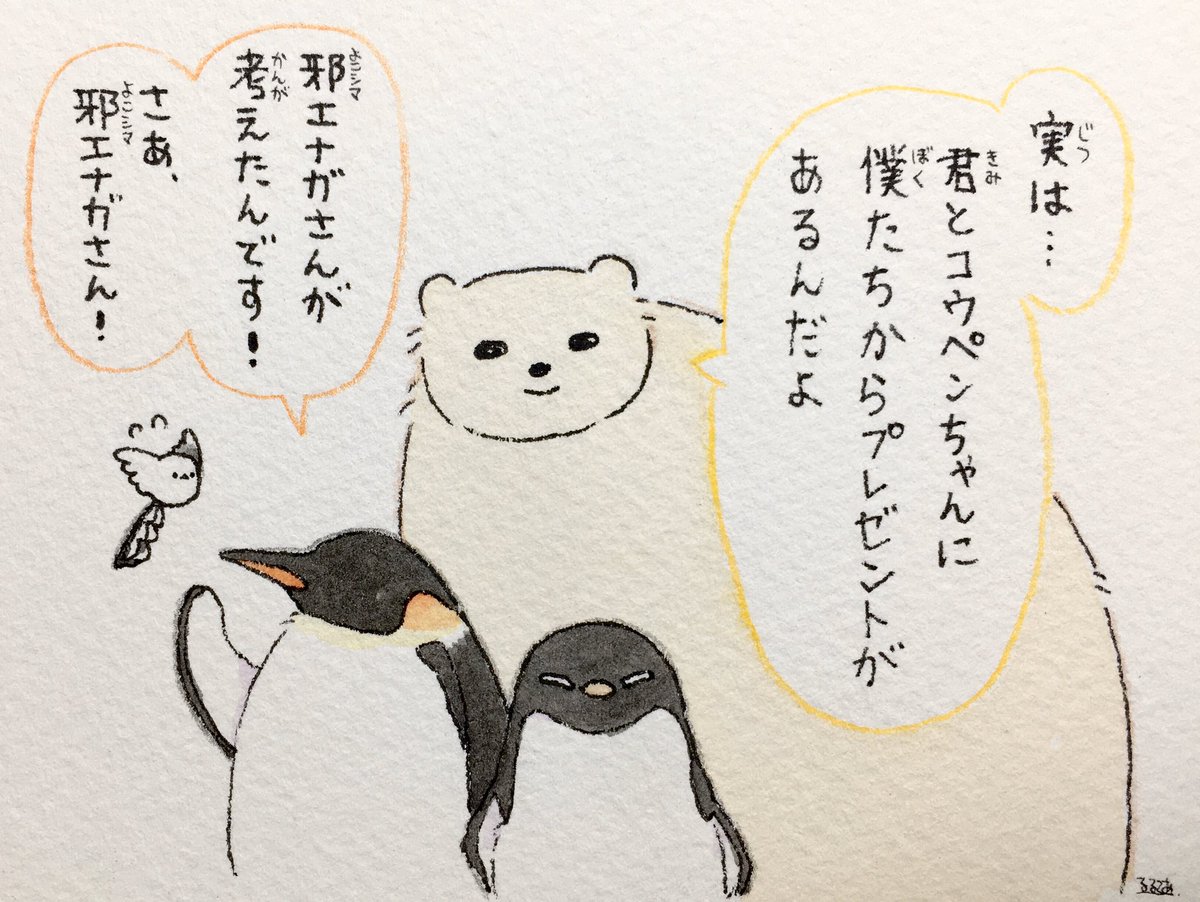 実は…
君とコウペンちゃんに
僕たちからプレゼントが
あるんだよ
邪エナガさんが
考えたんです!
さあ、
邪エナガさん!
るるてあ